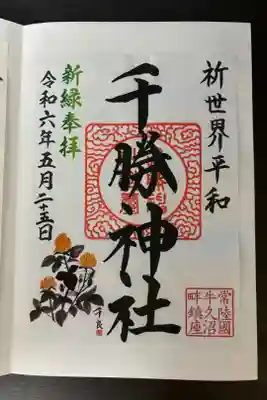 祈世界平和
千勝神社
新緑奉拝
令和六年五月二十五日
常陸國
牛久沼
畔鎮座
千良